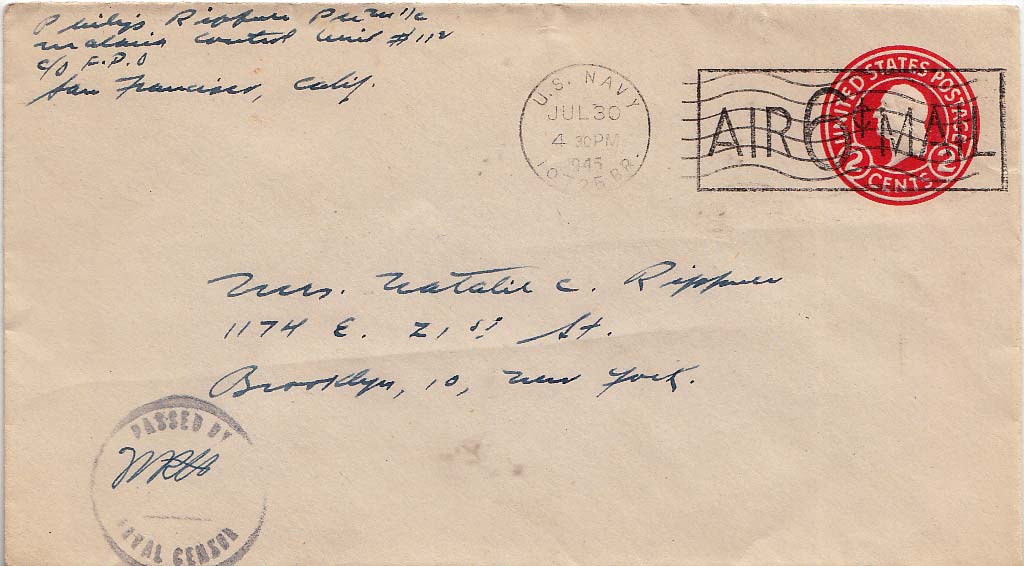 Philip Rippner PhM 1/c
Malaria Control Unit #112
c/o F.P.O
San Francisco, Calif.
U.S. NAVY
JUL 30
4 30 PM
1945
BR.
AIR 6¢ MAIL
UNITED STATES POSTAGE
2 CENTS 2
Mrs. Natalie C. Rippner
1174 E. 21 st St.
Brooklyn, 10, New York.
PASSED BY
NAVAL CENSOR